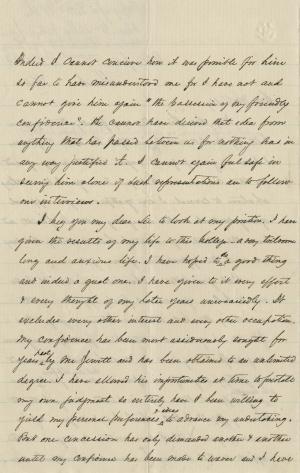 Indeed I cannot conceive how it was possible for him
so far to have misunderstood me for I have not and
cannot give him again "the possession of my friendly
confidence". He cannot have derived that idea from
anything that has passed between us for nothing has in
any way justified it. I cannot again feel safe in
seeing him alone if such representations are to follow
our interviews.
I beg you my dear Sir to look at my position. I have
given the results of my life to this College. A long
and anxious life. I have hoped to do a good thing
and indeed a great one. I have given to it every effort
& every thought of my later years unceasingly. It
excludes every other interest and every other occupation.
My confidence has been most assiduously sought for
years past by Mr Jewett and has been obtained to an unlimited
degree. I have allowed his importunities at times to
my own judgment so entirely have I been willing to
yield my personal preferences to advance my undertaking.
But one concession has only demanded another & another
until my confidence has been made to waver and I have